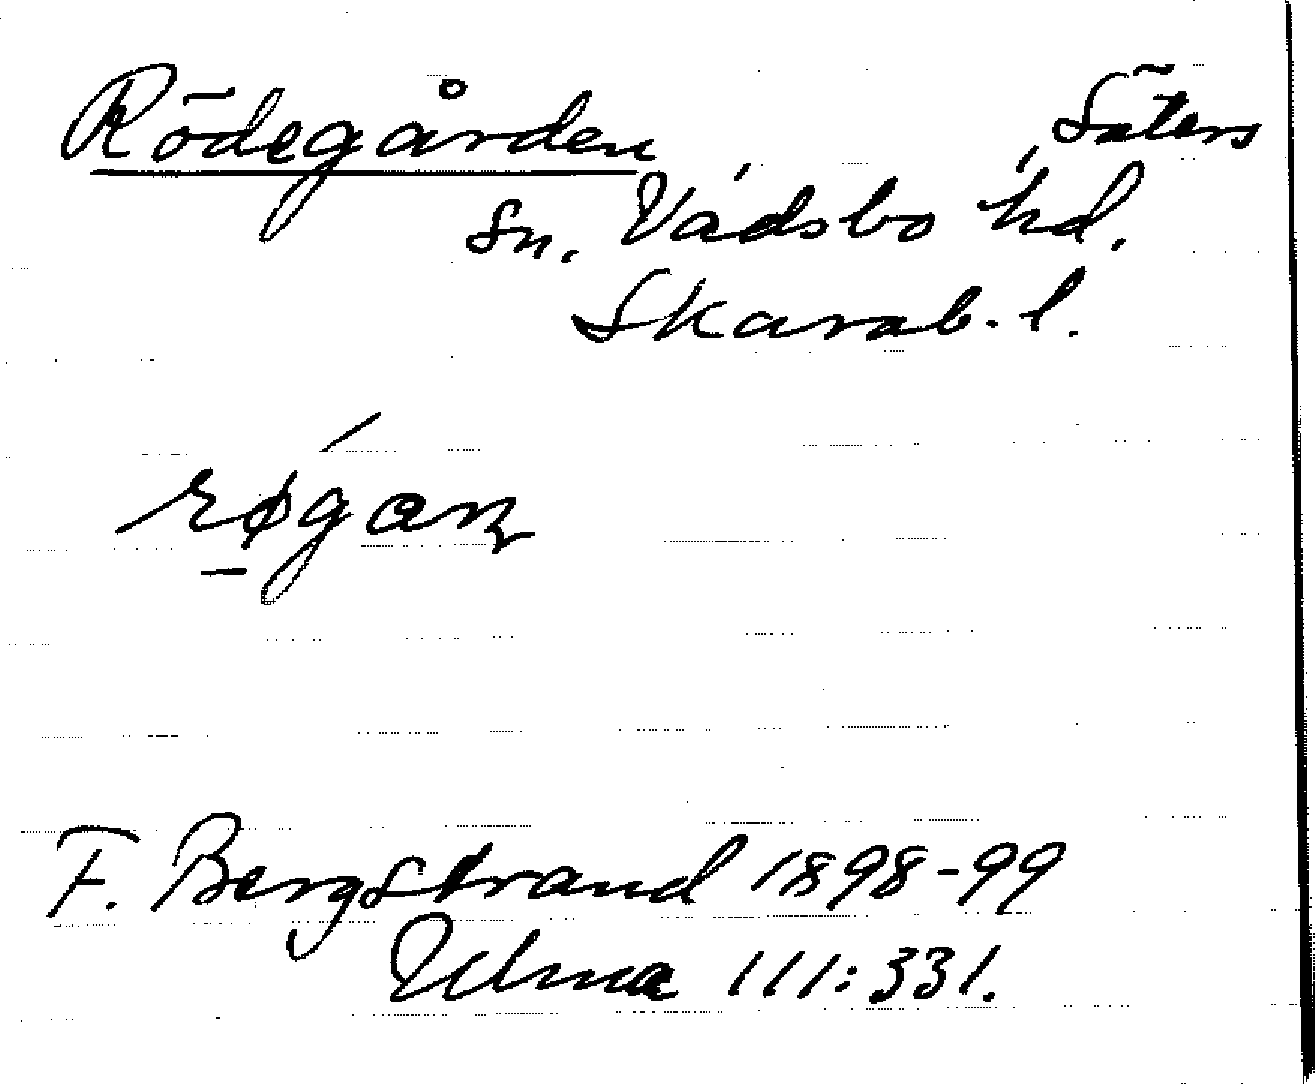 Rödegården Säters
sn. Vadsbo hd.
Skarab. l.
røgaɳ
F. Bergstrand 1898-99
Ulma 111:331.